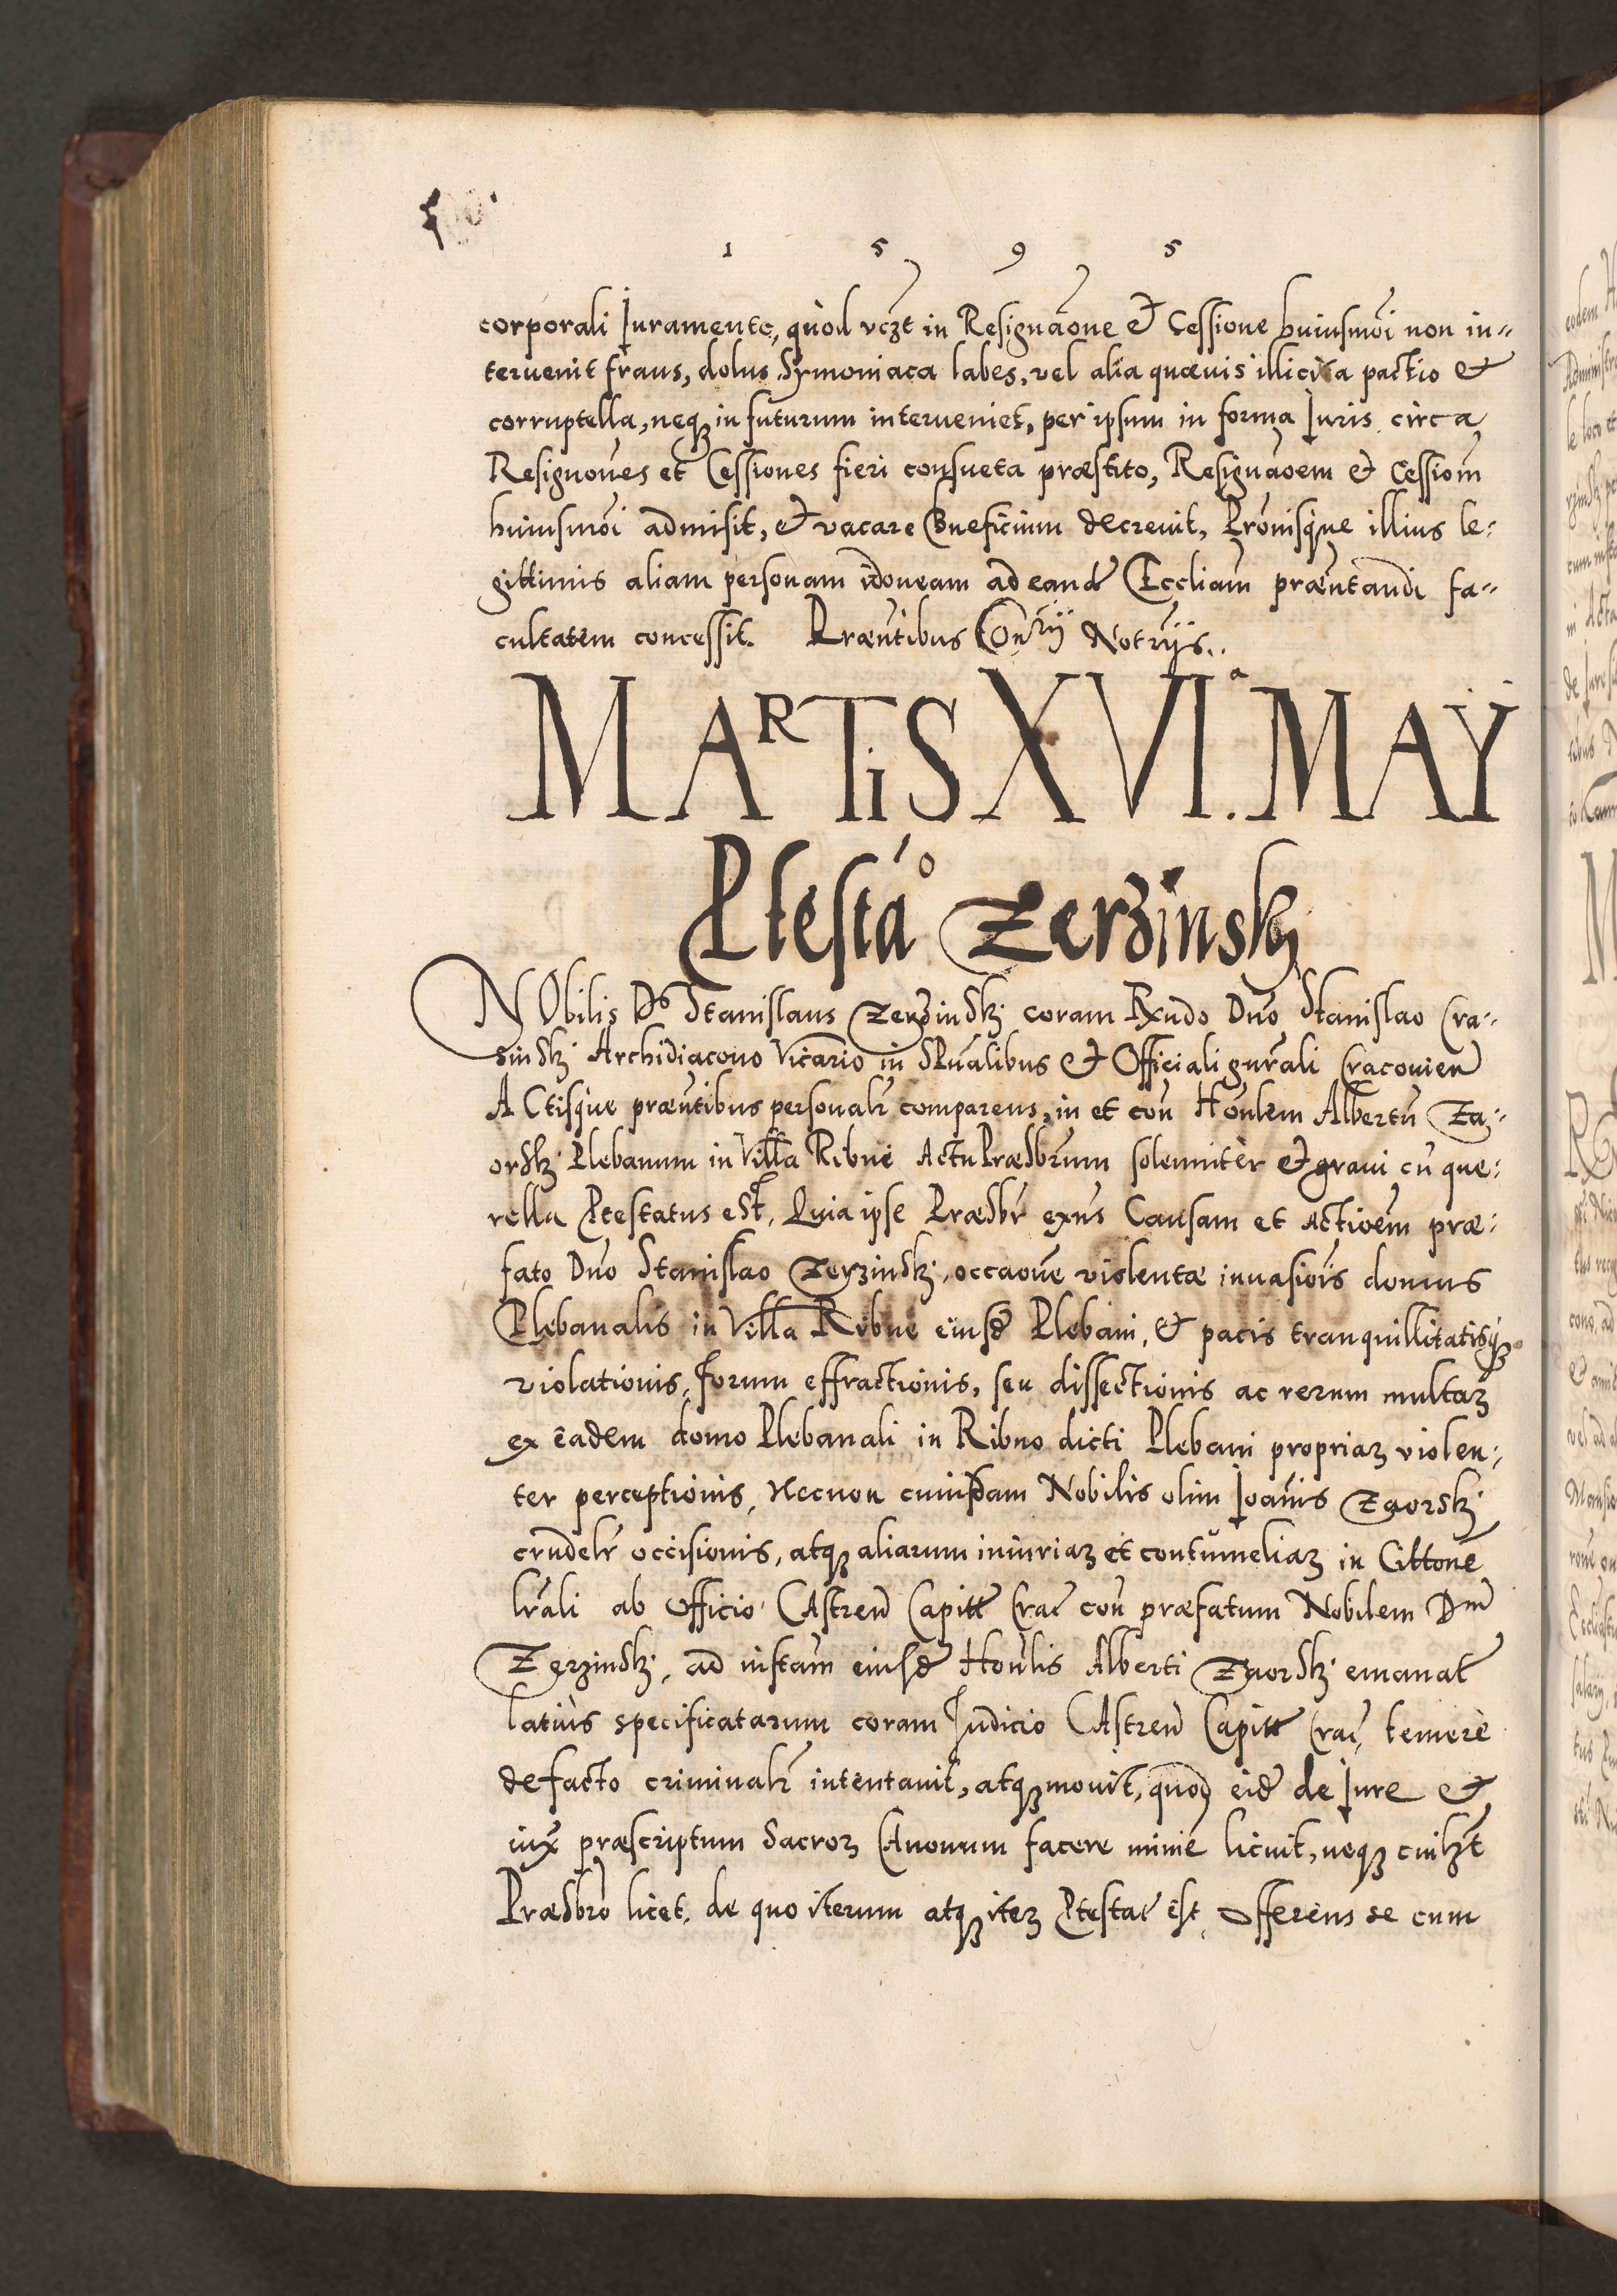 1 5 9 5
corporali Iuramento, quòd vczt in Resignãone et Cessione huiusmõi non in"
teruenit fraus, dolus Symoniaca labes, vel alia quæuis illicita pactio et
corruptella, neqꝫ in futurum interueniet, per ipsum in forma Iuris circa
Resignões et Cessiones fieri consueta præstito, Resignãoem et Cessiom̃
huiusmõi admisit, et vacare Bneficium decreuit, Prouisq́ue illius le:
gittimis aliam personam idoneam ad eand̃ Eccliam̃ præntandi fa"
cultatem concessit. Præñtibus Conrÿ Notrÿs..
MARTiS XVI.ª MAŸ
Ptestão Zerzinskj
NObilis Ds Stanislaus Zerzinskj coram Rxndo Dño Stanislao Cra"
sinskj Archidiacono Vicario in Spũalibus et Officiali gnrãli Cracouien̄
ACtisque præñtibus personalr comparens, in et con̄ Honlem Albertũ Za"
orskj Plebanum in Villa Ribne Actu Præsbrum solemnitèr et graui cũ que:
rella Ptestatus est, Quia ipse Præsbr̃ exñs Causam et Actioem̃ præ:
fato Dño Stanislao Zerzinskj, occaone violentæ inuasiõis domus
Plebanalis in Villa Ribne eiusd̃ Plebani, et pacis tranquillitatisq́ꝫ
violationis, forum effractionis, seu dissectionis ac rerum multaꝝ
ex eadem domo Plebanali in Ribno dicti Plebani propriaꝝ violen:
ter perceptionis, Necnon cuiusdam Nobilis olim Ioañis Zaorskj
crudelr occisionis, atqꝫ aliarum iniuriaꝝ et contumeliaꝝ in Cittone
lrãli ab Officio CAstren̄ Capitt Crac̃ con̄ præfatum Nobilem Dnm̃
Zerzinskj, ad instam̃ eiusd̃ Honlis Alberti Zaorskj emanat̃
latiùs specificatarum coram Iudicio CAstren̄ Capitt Crac̃, temerè
de facto criminalr intentauit, atqꝫ mouit, quod eid̃ de Iure et
iux̃ præscriptum Sacroꝝ CAnonum facere minie licuit, neqꝫ cuilꝫt
Præsbro licet, de quo iterum atqꝫ iteꝝ Ptestat̃ est, Offerens se cum